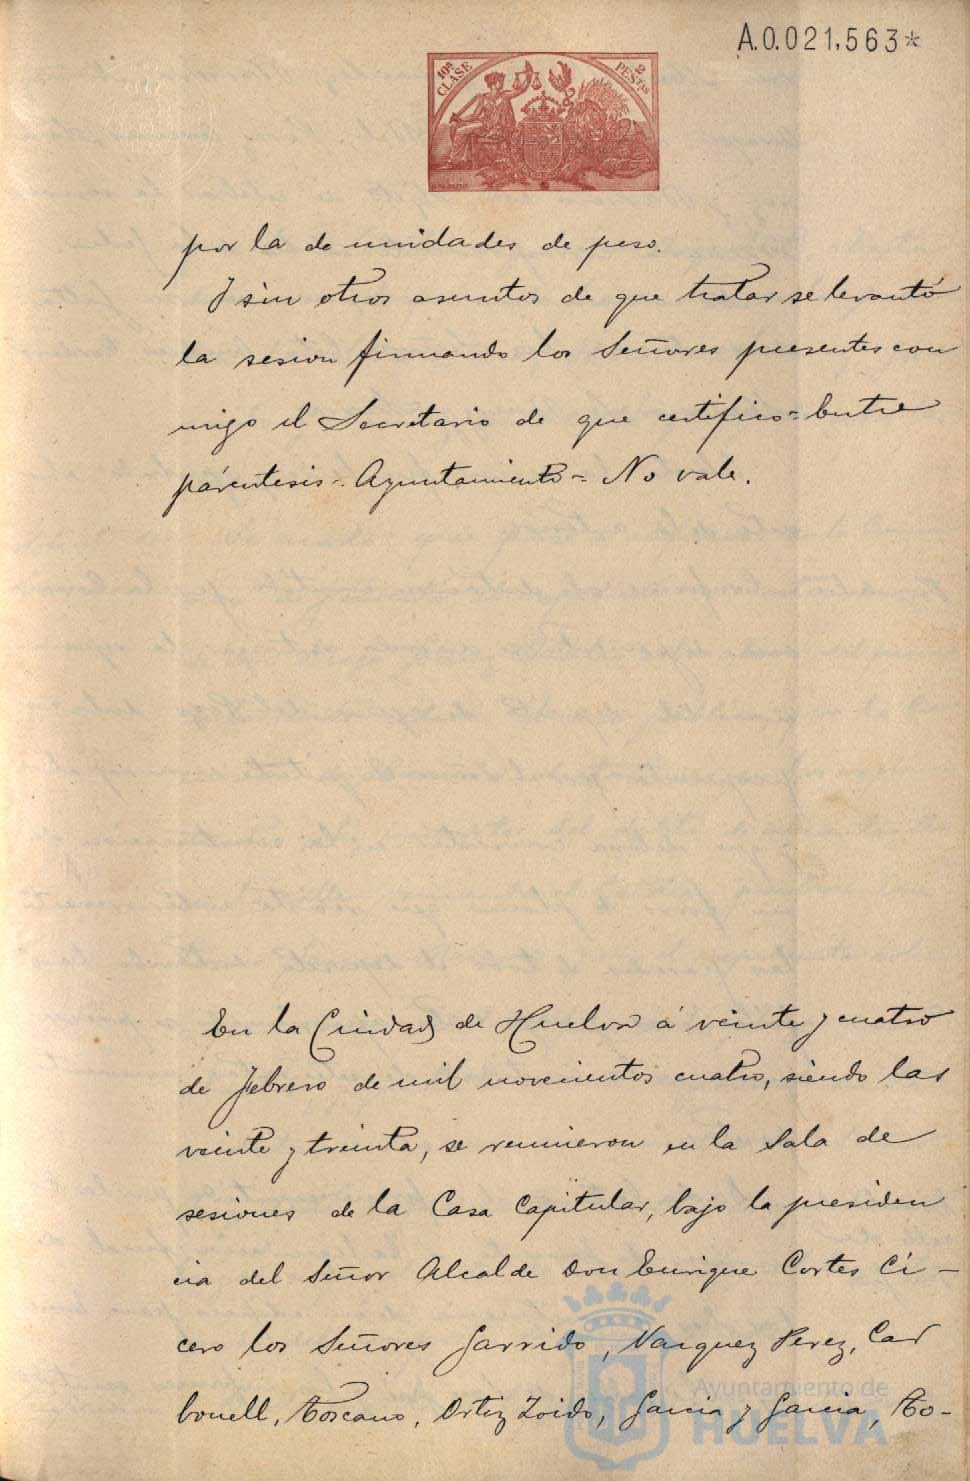 A.0.021,563*
10ª CLASE
2 PESTAS
por la de unidades de peso.
Y sin otros asuntos de que tratar se levantó
la sesion firmando los Señores presentes con
migo el Secretario de que certifico = Entre
paréntesis = Ayuntamiento = No vale.
En la Ciudad de Huelva á veinte y cuatro
de Febrero de mil novecientos cuatro, siendo las
veinte y treinta, se reunieron en la Sala de
sesiones de la Casa Capitular, bajo la presiden
cia del Señor Alcalde Don Enrique Cortes Cí-
cero los Señores Garrido, Vazquez Perez, Car
bonell, Toscano, Ortiz Zoido, Garcia y Garcia, To-
Ayuntamiento de
HUELVA